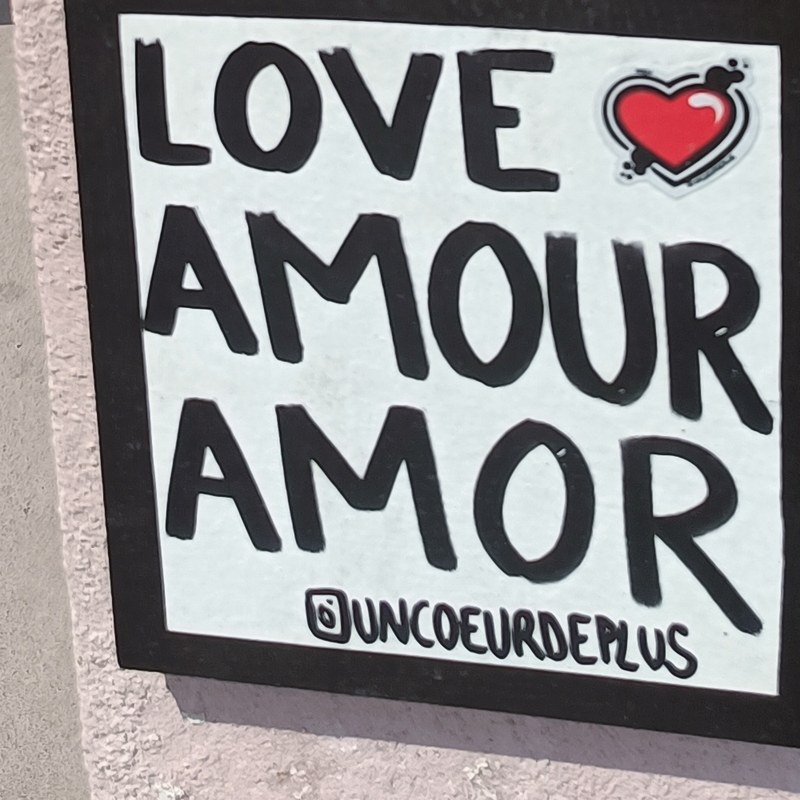 LOVE
AMOUR
AMOR
UNCOEURDEPLUS